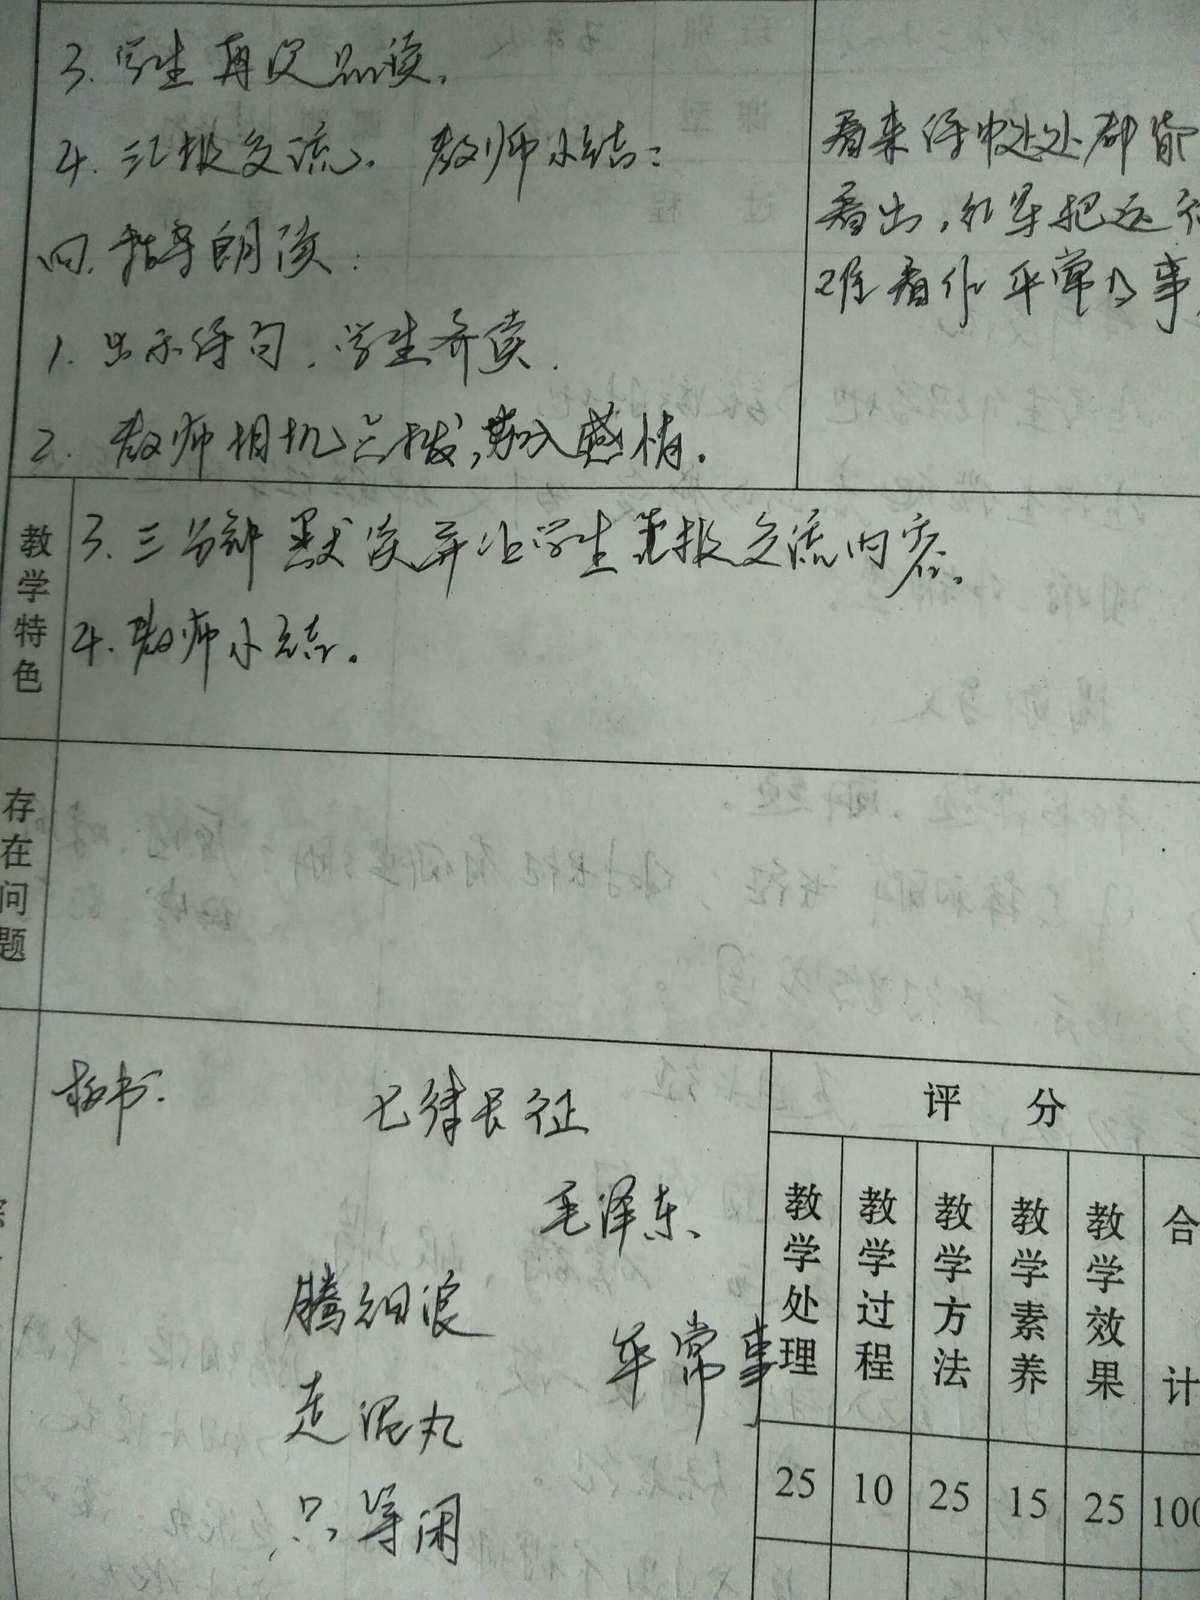 3. 学生再次品读。
4. 汇报交流。教师小结:
四. 指导朗读:
1. 出示诗句. 学生齐读.
2. 教师相机点拨,加入感情.
看来诗中处处都能
看出,红军把远征
难看作平常的事.
教学特色
3. 三分钟默读并让学生汇报交流内容.
4. 教师小结.
存在问题
板书:
七律长征
毛泽东
腾细浪
走泥丸
只等闲
平常事
评 分
教学处理 教学过程 教学方法 教学素养 教学效果 合计
25 10 25 15 25 100